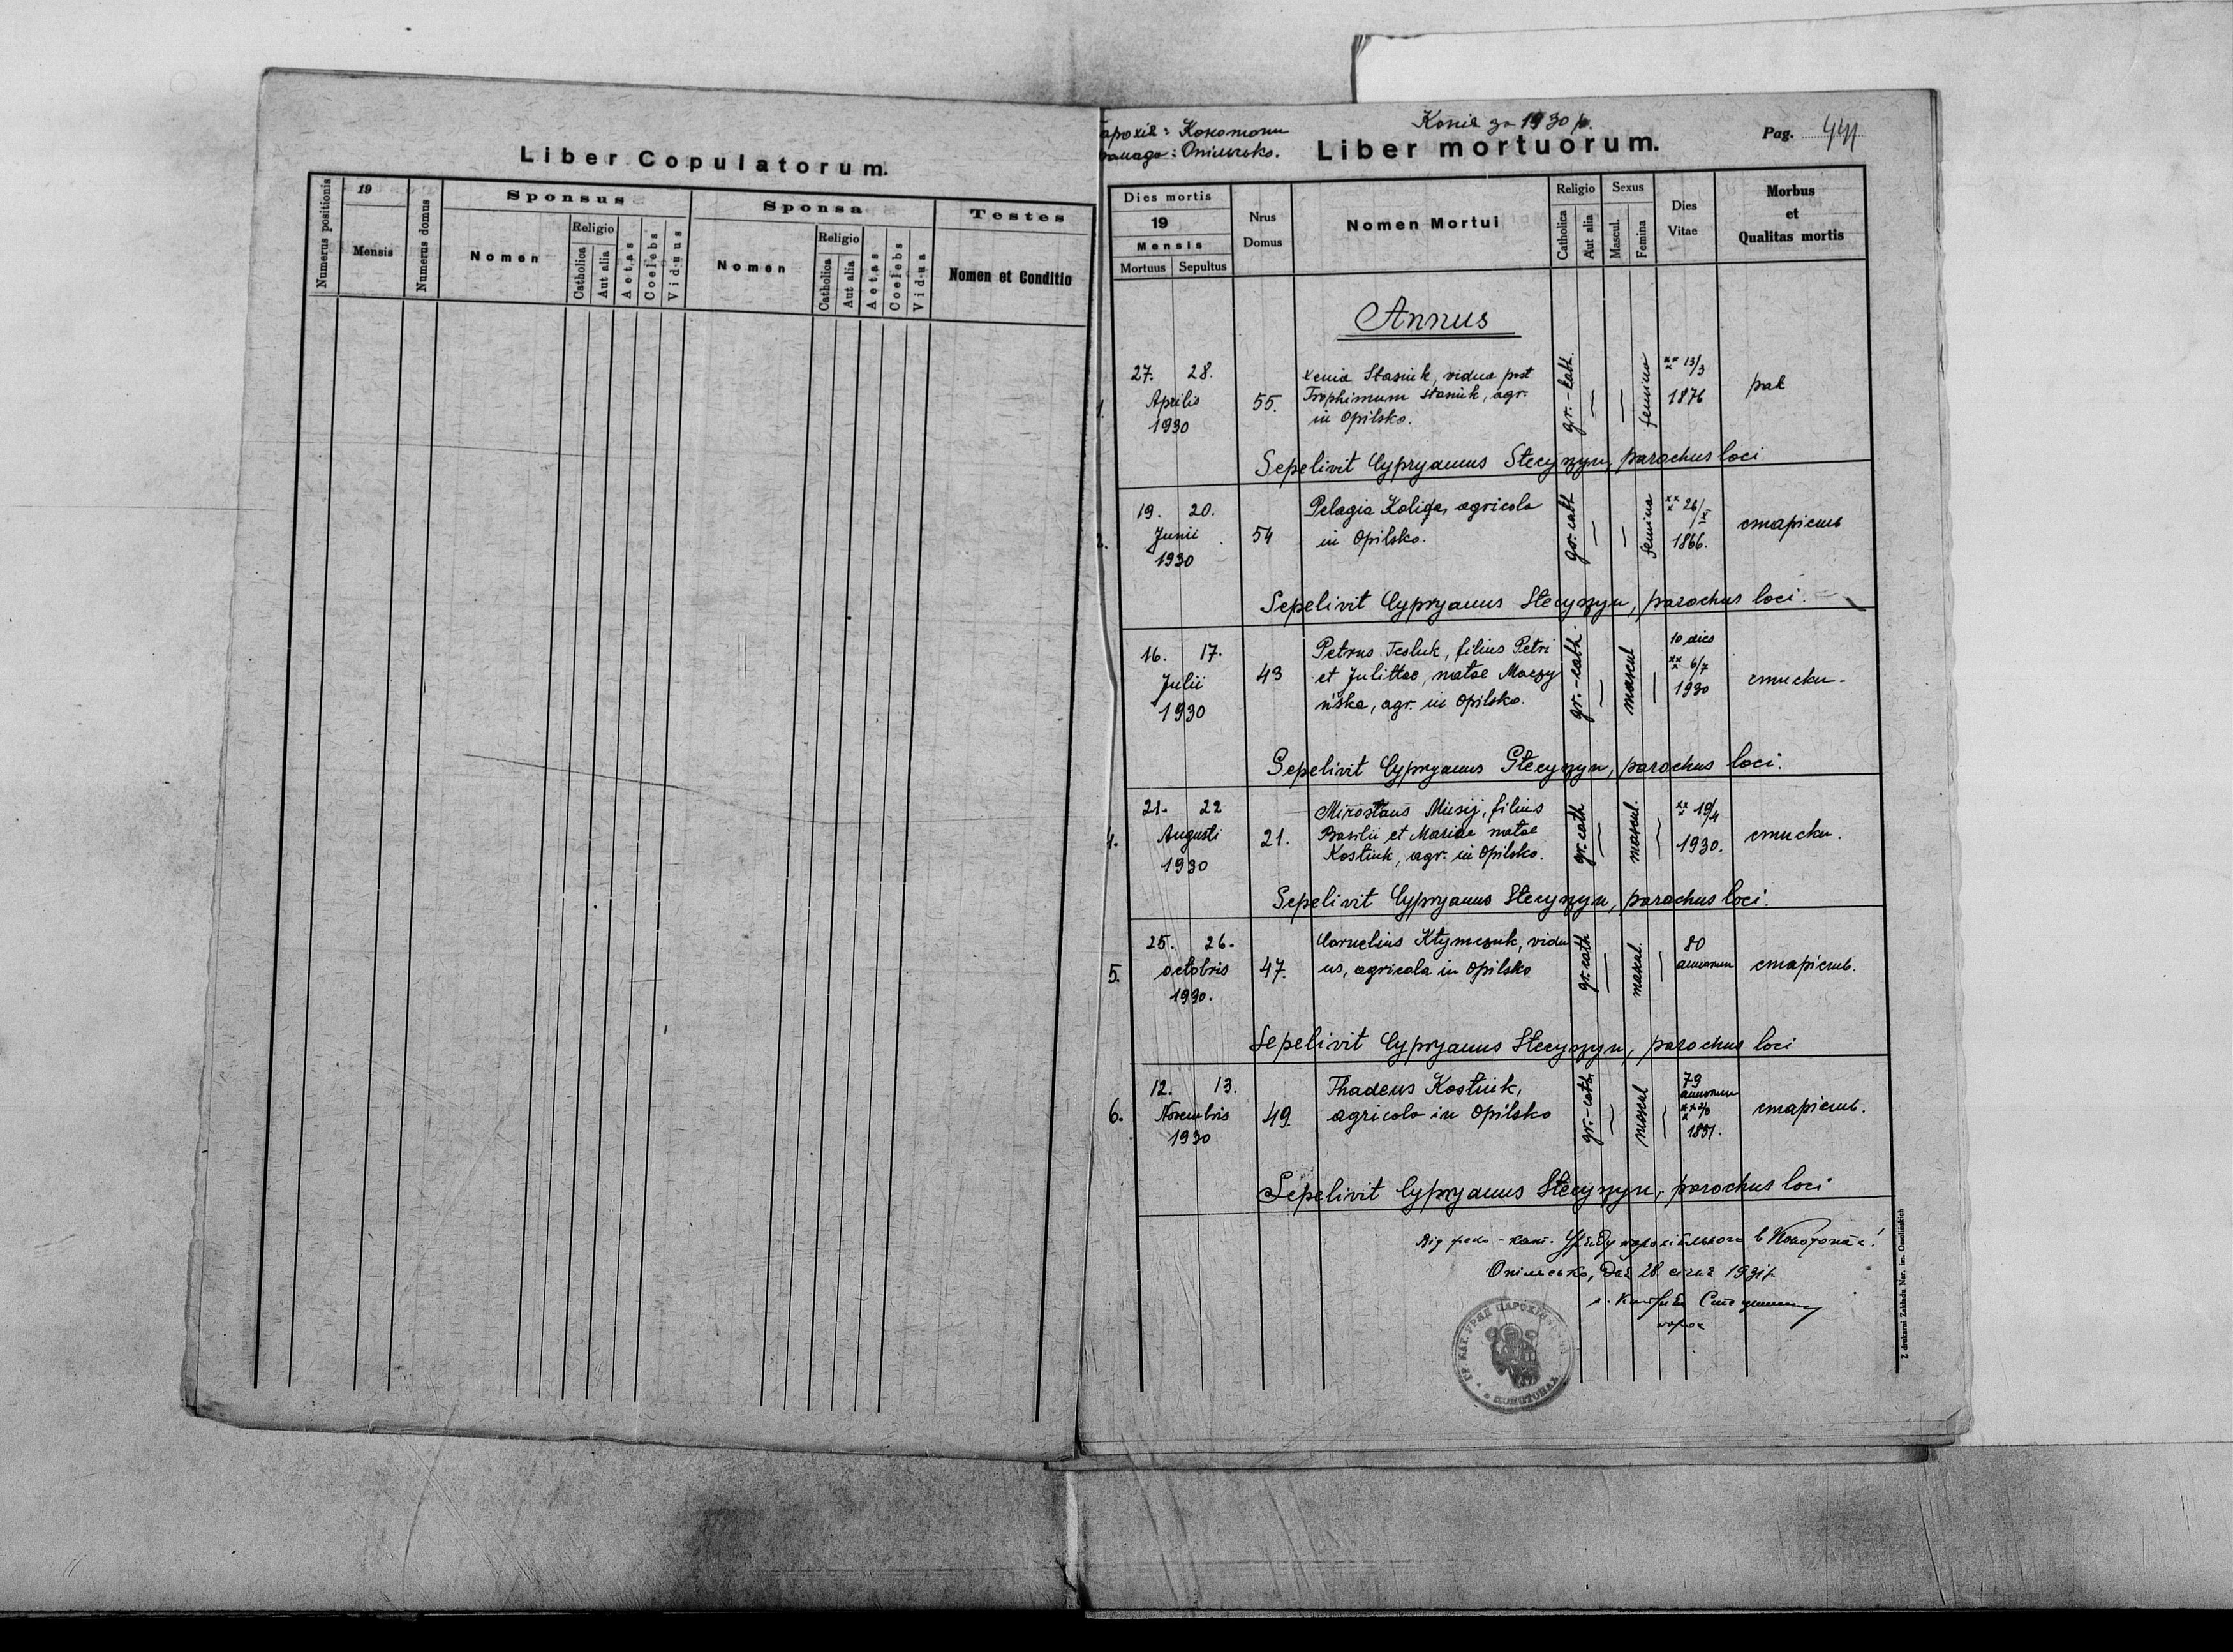 Liber Copulatorum.
Numerus positionis
19
Mensis
Numerus domus
Sponsus
Nomen
Religio
Catholica
Aut alia
Aetas
Coelebs
Viduus
Sponsa
Nomen
Religio
Catholica
Aut alia
Aetas
Coelebs
Vidua
Testes
Nomen et Conditio
Копія за 1930 р.
Конотопи
Опільсько.
Liber mortuorum.
Pag.
Dies mortis
19
Mensis
Mortuus Sepultus
Nrus Domus
Nomen Mortui
Religio
Catholica
Aut alia
Sexus
Mascul.
Femina
Dies Vitae
Morbus
et
Qualitas mortis
Annus
1.
27. 28.
Aprilis
1930
55.
Xenia Stasiuk, vidua post
Trophimum Stasiuk, agr.
in Opilsko.
gr.-cath.
femina
13/3
1876
рак
Sepelivit Cypryanus Stecyszyn, parochus loci
2.
19. 20.
Junii
1930
54
Pelagia agricola
in Opilsko.
gr. cath
femina
1866.
старість
Sepelivit Cypryanus Stecyszyn, parochus loci.
16. 17.
Julii
1930
43
Petrus Tesluk, filius Petri
et Julittae, natae Maczy
ńska, agr. in Opilsko.
gr.-cath.
mascul
10 dies
6/7
1930
стиски.
Sepelivit Cypryanus Stecyszyn, parochus loci.
21. 22
Augusti
1930
21.
Mirosłaus Musij, filius
Basilii et Mariae natae
Kostiuk, agr. in Opilsko.
gr. cath
mascul.
19/4
1930.
стиски.
Sepelivit Cypryanus Stecyszyn, parochus loci.
5.
25. 26.
octobris
1930.
47.
Cornelius Kłymczuk, vidu
us, agricola in Opilsko
gr. cath
maskul.
80
annorum
старість.
Sepelivit Cypryanus Stecyszyn, parochus loci
6.
12. 13.
Novembris
1930
49.
Thadeus Kostiuk,
agricola in Opilsko
gr.-cath.
mascul
79
annorum
1851.
старість.
Sepelivit Cypryanus Stecyszyn, parochus loci
Від греко-кат. Уряду парохіяльного в Конотопах!
Опільсько, дня 28 січня 1931 р.
парох
ГР. КАТ. УРЯД ПАРОХІЯЛЬНИЙ
КОНОТОПАХ
Z drukarni Zakładu Nar. im. Ossolińskich